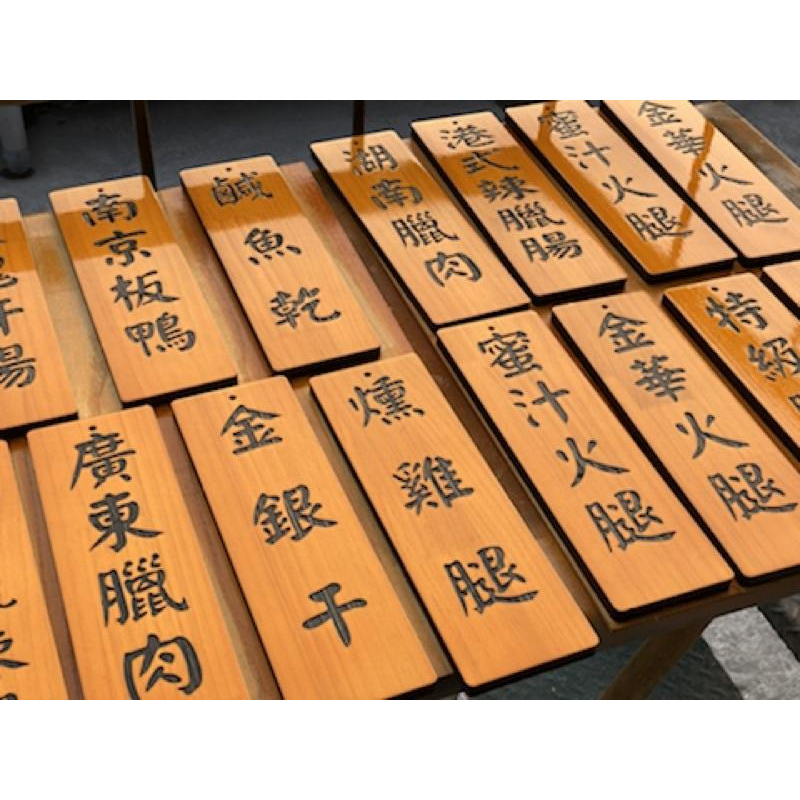 南京板鴨
鹹魚乾
湖南臘肉
港式辣臘腸
蜜汁火腿
金華火腿
廣東臘肉
金銀干
燻雞腿
蜜汁火腿
金華火腿
特級